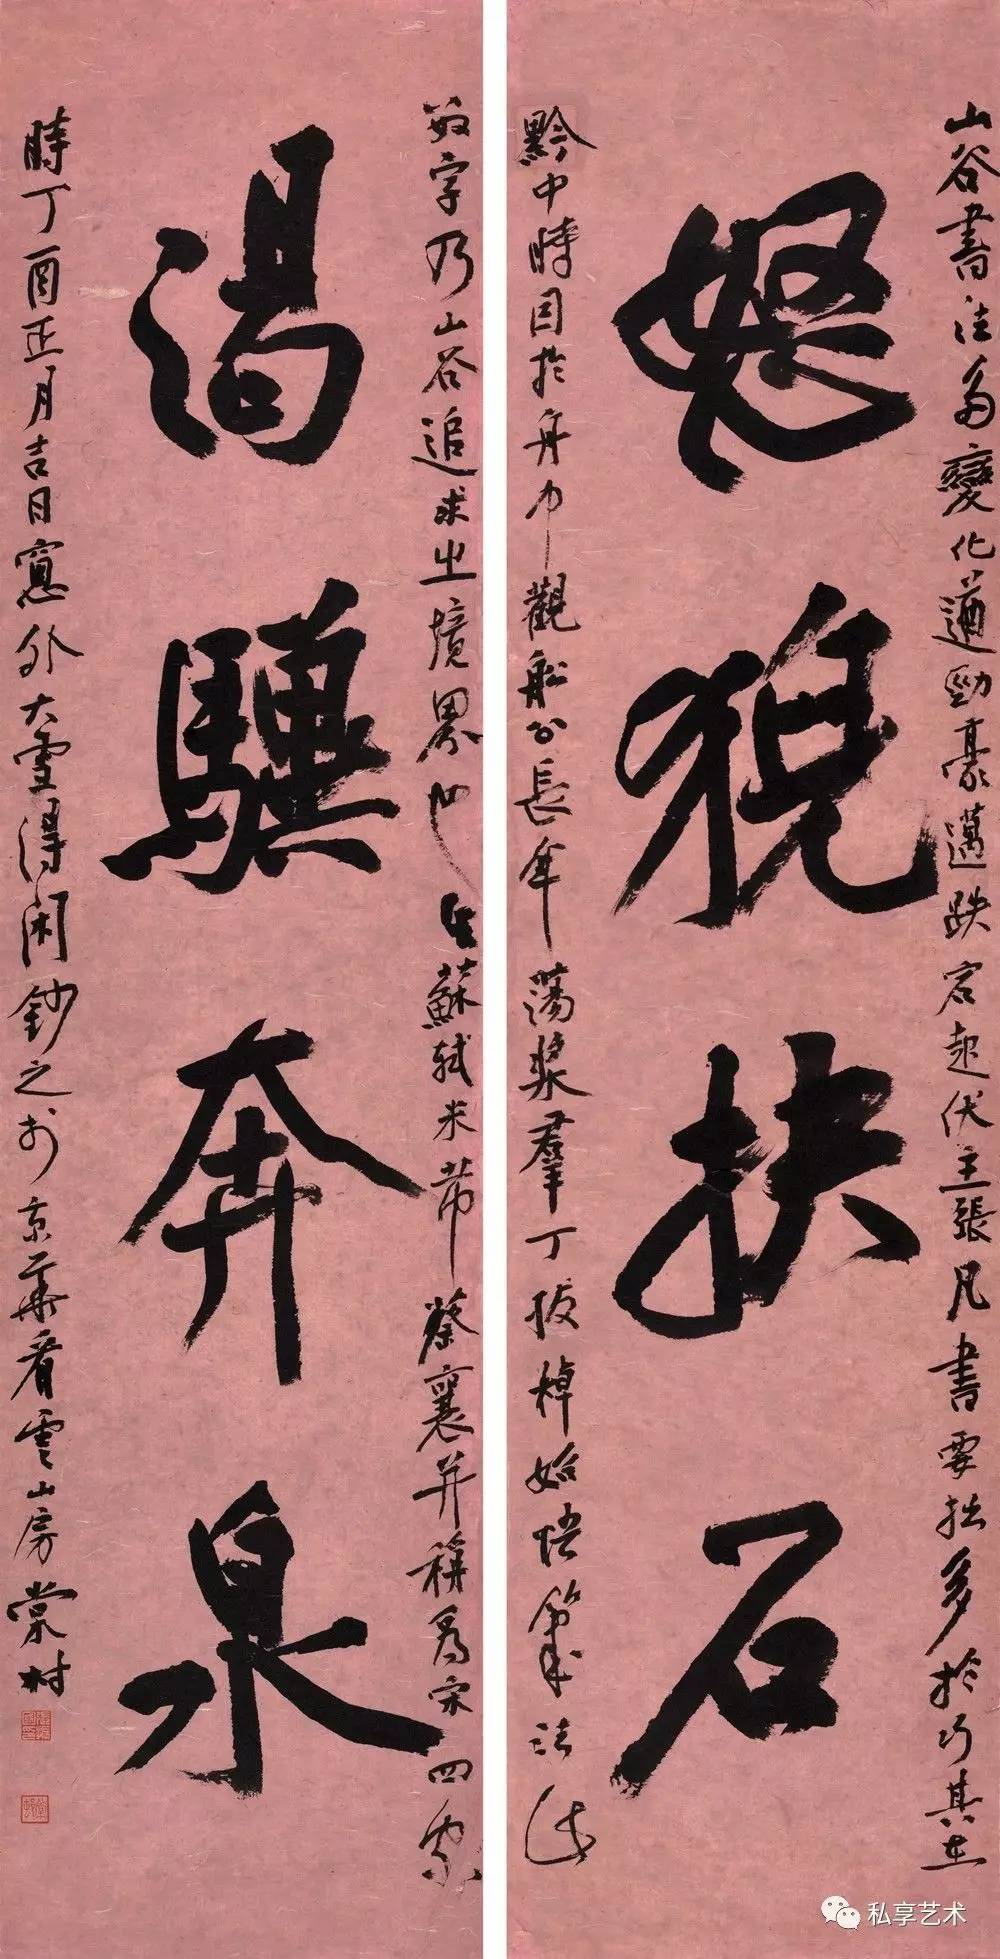 山谷書法多變化遒勁豪邁跌宕起伏主張凡書要拙多於巧其在
怒猊抉石
黔中時因於舟中觀船公長年蕩槳羣丁拔棹始悟筆法此
數字乃山谷追求之境界也与蘇軾米芾蔡襄并稱爲宋四家
渴驥奔泉
時丁酉正月吉日窗外大雪得闲鈔之於京華看雲山房棠村
私享艺术